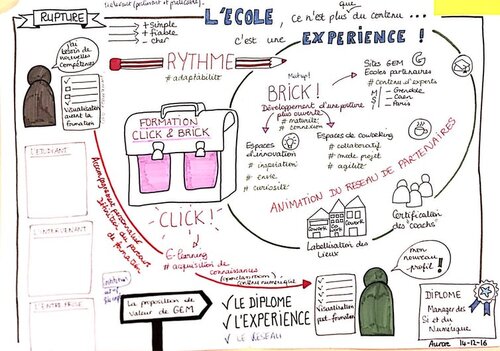 RUPTURE
+ simple
+ fiable
- cher
L'ÉCOLE, ce n'est plus du contenu...
c'est une EXPERIENCE!
J'ai besoin de nouvelles compétences
Visualisation avant la formation
RYTHME
# adaptabilité
FORMATION
CLICK & BRICK
BRICK!
Développement d'une posture
plus ouverte
# maturité
# connexion
Sites GEM
Ecoles partenaires
# contenu d'experts
Grenoble
Caen
Paris
Espaces
d'innovation
# inspiration
# envie
# curiosité
Espaces de coworking
# collaboratif
# mode projet
# agilité
ANIMATION DU RESEAU DE PARTENAIRES
Certification des
"coachs"
Cowork
Cowork
Cowork
Labellisation des
Lieux
CLICK!
E-learning
# acquisition de
connaissances
contenu numérique
Accompagnement personnalisé
de formation
L'ETUDIANT
L'INTERVENANT
L'ENTREPRISE
La proposition de
valeur de GEM
✓ LE DIPLOME
✓ L'EXPERIENCE
✓ LE RESEAU
Visualisation
post-formation
mon
nouveau
profil!
DIPLOME
Manager des
SI et du
Numérique
Aurore 14-12-16